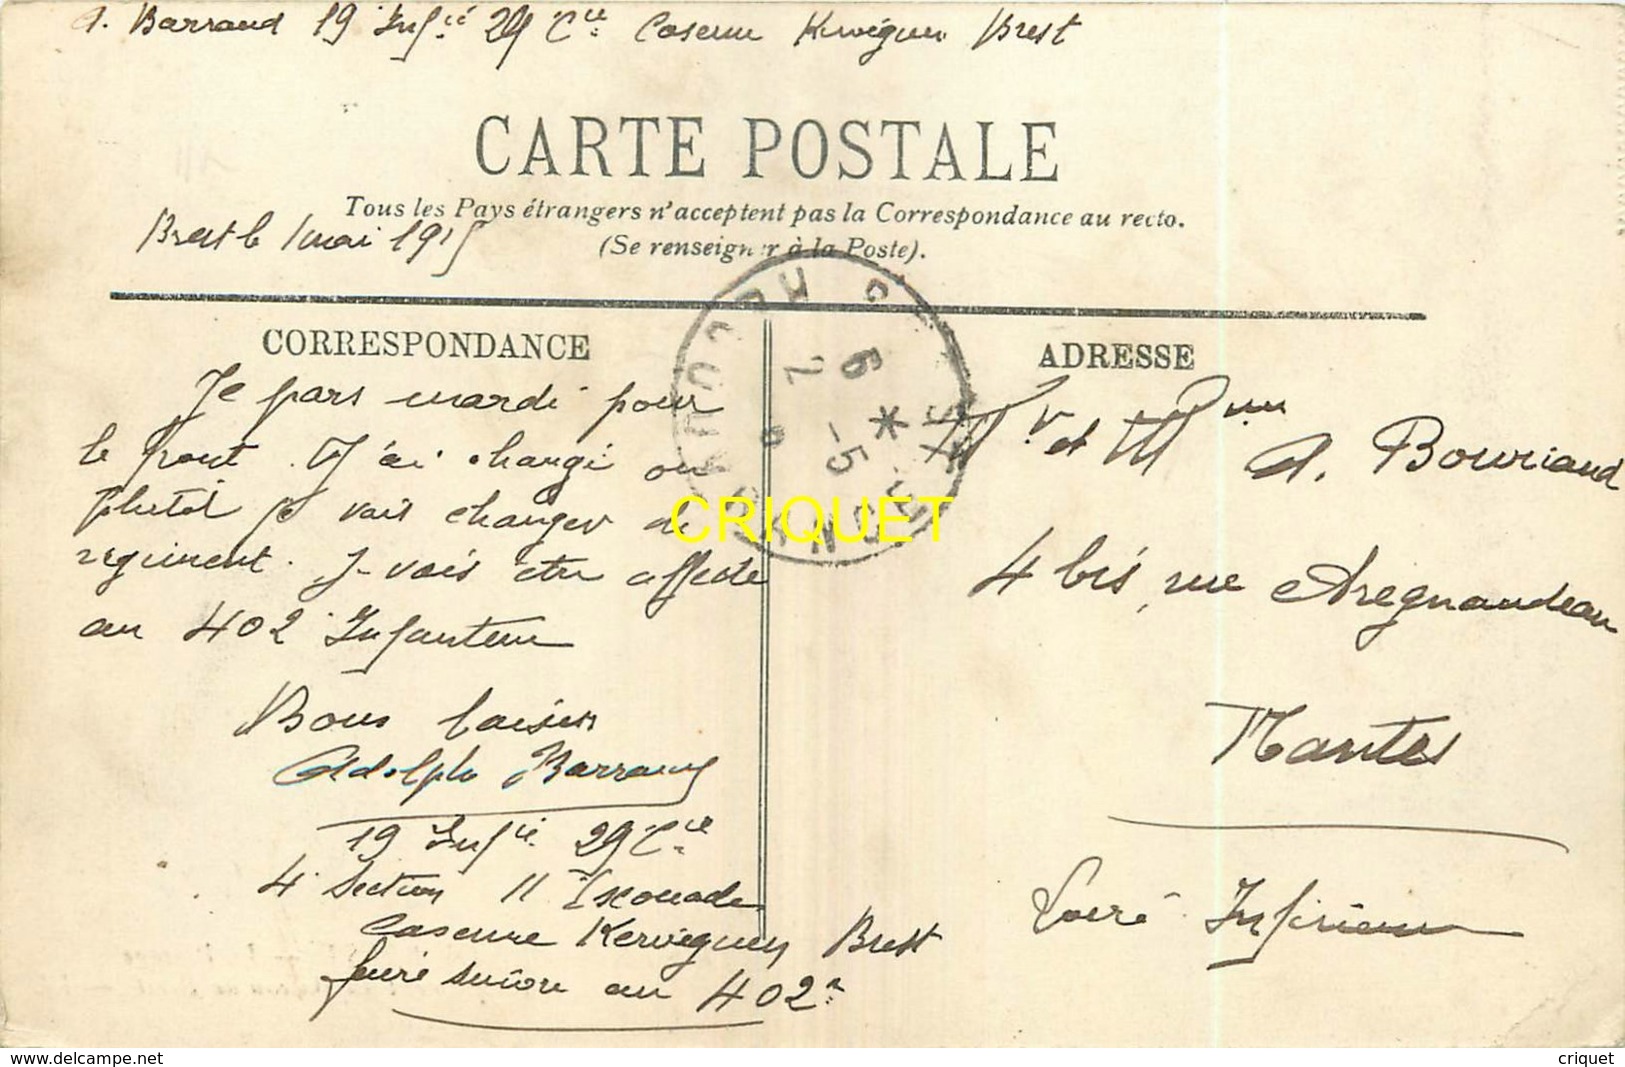 A. Barraud 19 Infie 29 Cie Caserne Kervéguen Brest
CARTE POSTALE
Tous les Pays étrangers n'acceptent pas la Correspondance au recto.
(Se renseigner à la Poste).
Brest le 1 mai 1915
CORRESPONDANCE
Je pars mardi pour
le front. J'ai changé ou
plutôt je vais changer de
régiment. Je vais être affecté
au 402 Infanterie
Bons baisers
Adolphe Barraud
19 Infie 29 Cie
4 Section 11 Escouade
Caserne Kervéguen Brest
faire suivre au 402e
ADRESSE
Mr et Mme A. Bourriaud
4 bis, rue Aregnaudeau
Nantes
Loire Inférieure
6 * 2 -5
CRIQUET
www.delcampe.net
criquet